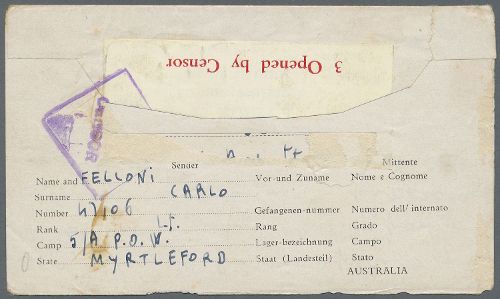 3 Opened by Censor
CENSOR
Sender Mittente
Name and FELLONI Vor-und Zuname Nome e Cognome
Surname CARLO
Number 47106 Gefangenen-nummer Numero dell' internato
Rank Rang Grado
Camp 5/A P.O.W. Lager-bezeichnung Campo
State MYRTLEFORD Staat (Landesteil) Stato
AUSTRALIA